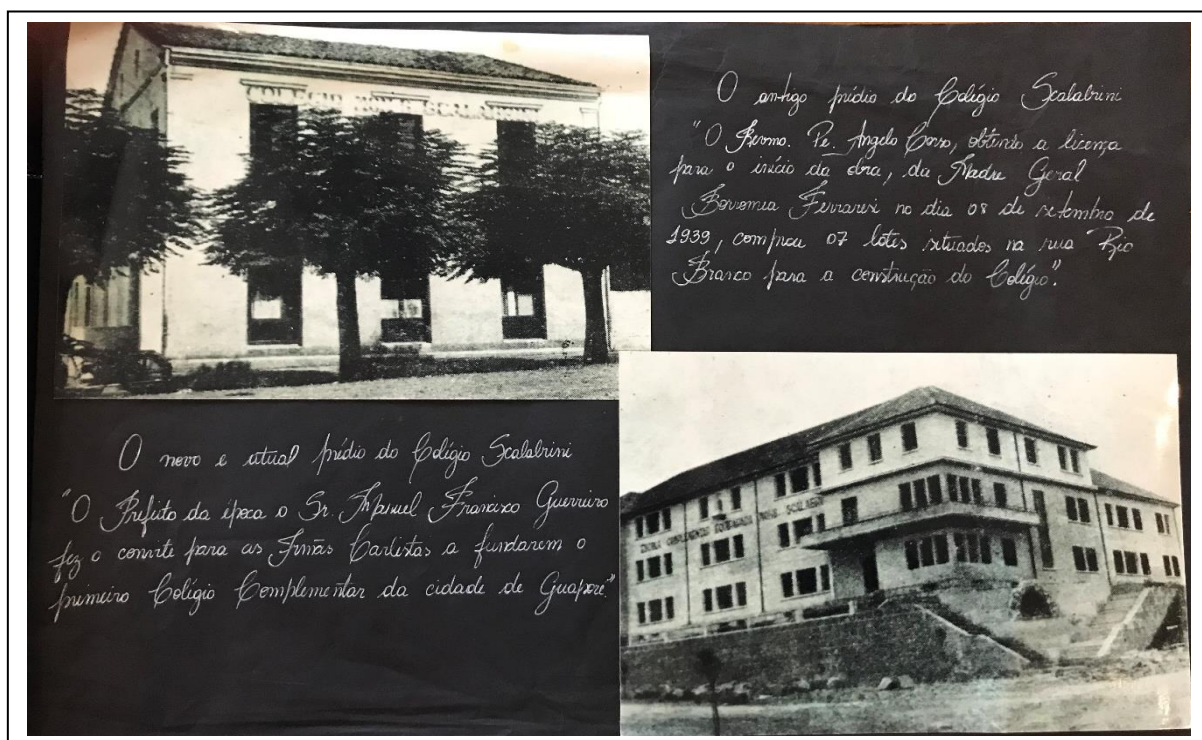 COLEGIO
O antigo prédio do Colégio Scalabrini
"O Revmo. Pe. Angelo Corso, obtendo a licença
para o início da obra, da Madre Geral
Borromea Ferraresi no dia 08 de setembro de
1939, comprou 07 lotes situados na rua Rio
Branco para a construção do Colégio".
O novo e atual prédio do Colégio Scalabrini
"O Prefeito da época o Sr. Manuel Francisco Guerreiro
fez o convite para as Irmãs Carlistas a fundarem o
primeiro Colégio Complementar da cidade de Guaporé"
ESCOLA COMPLEMENTAR